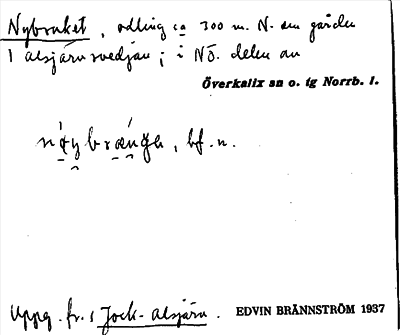 Nybruket, odling ca 300 m. N. om gården
1 alsjärnsvedjan; i NÖ. delen av
Överkalix sn o. tg Norrb. l.
bf. n.
Uppg. fr. s Jock-alsjärn. EDVIN BRÄNNSTRÖM 1937